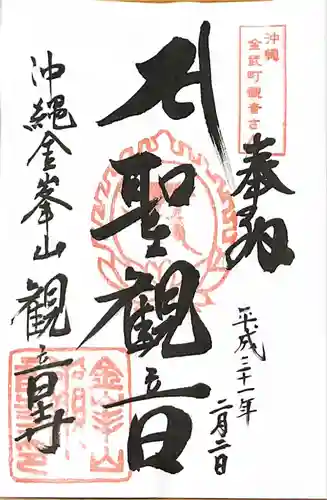 沖縄
金武町観音寺
奉拝
平成三十一年
二月二日
聖観音
沖縄金峯山観音寺